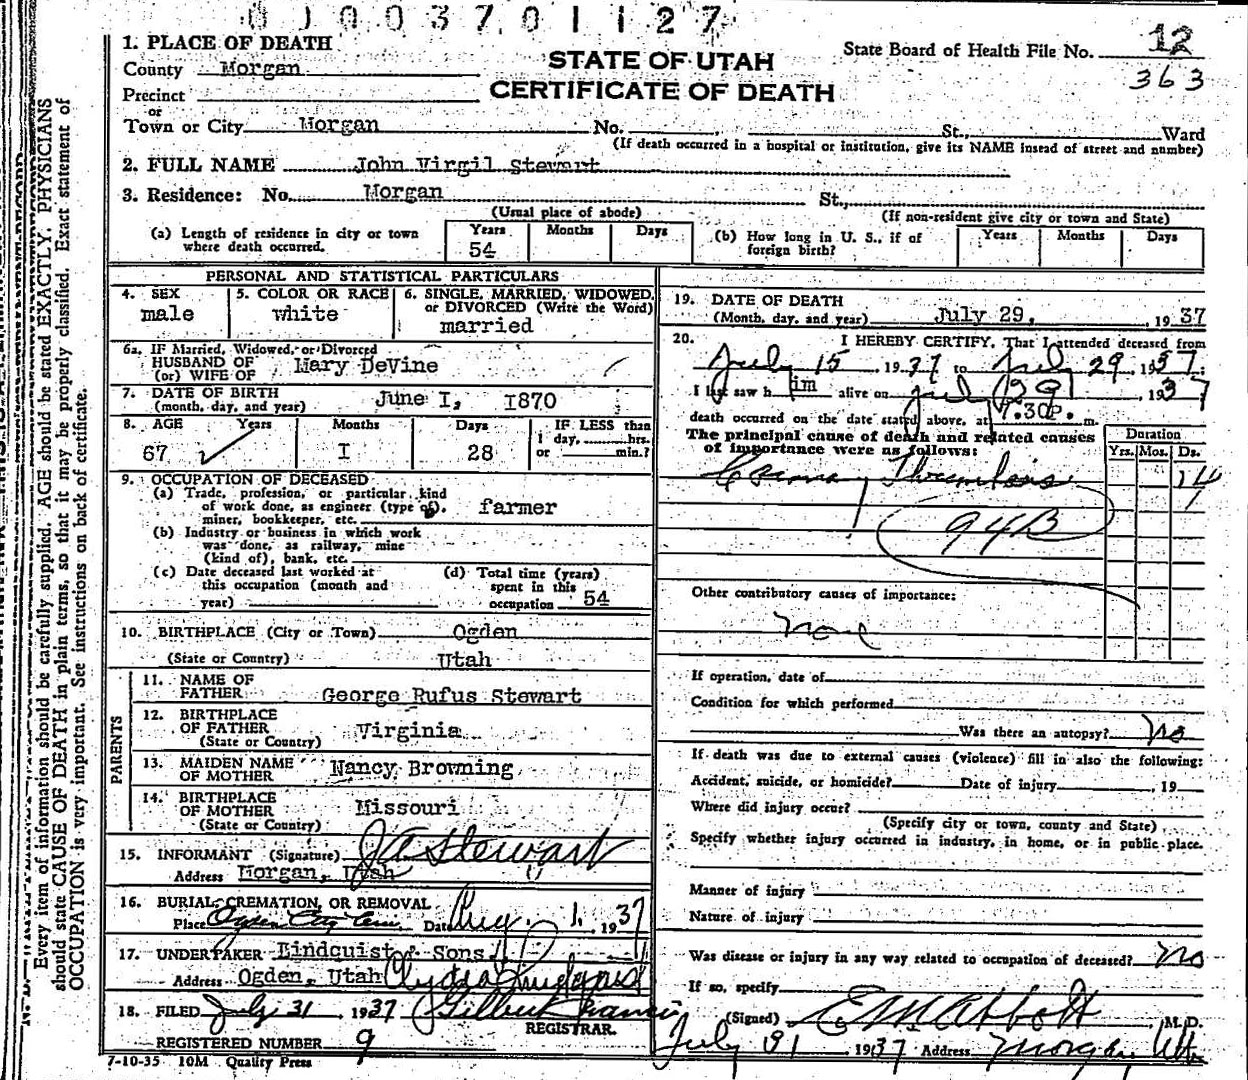 0 1 0 0 3 7 0 1 1 2 7
1. PLACE OF DEATH
County Morgan
Precinct
or
Town or City Morgan No. St., Ward
STATE OF UTAH
CERTIFICATE OF DEATH
State Board of Health File No. 12
363
(If death occurred in a hospital or institution, give its NAME insead of street and number)
2. FULL NAME John Virgil Stewart
3. Residence: No. Morgan St.,
(Usual place of abode) (If non-resident give city or town and State)
(a) Length of residence in city or town where death occurred. Years 54 Months Days
(b) How long in U. S., if of foreign birth? Years Months Days
PERSONAL AND STATISTICAL PARTICULARS
4. SEX male
5. COLOR OR RACE white
6. SINGLE, MARRIED, WIDOWED, or DIVORCED (Write the Word) married
6a. IF Married, Widowed, or Divorced
HUSBAND OF Mary DeVine
(or) WIFE OF
7. DATE OF BIRTH
(month, day, and year) June I, I870
8. AGE Years Months Days IF LESS than
67 I 28 1 day, hrs. or min.?
9. OCCUPATION OF DECEASED
(a) Trade, profession, or particular kind
of work done, as engineer (type of), farmer
miner, bookkeeper, etc.
(b) Industry or business in which work
was done, as railway, mine
(kind of), bank, etc.
(c) Date deceased last worked at
this occupation (month and
year)
(d) Total time (years)
spent in this
occupation 54
10. BIRTHPLACE (City or Town) Ogden
(State or Country) Utah
PARENTS
11. NAME OF
FATHER George Rufus Stewart
12. BIRTHPLACE
OF FATHER Virginia
(State or Country)
13. MAIDEN NAME
OF MOTHER Nancy Browning
14. BIRTHPLACE
OF MOTHER Missouri
(State or Country)
15. INFORMANT (Signature) J A Stewart
Address Morgan, Utah
16. BURIAL, CREMATION, OR REMOVAL
Place Ogden City Cem. Date Aug. 1. 1937
17. UNDERTAKER Lindquist & Sons
Address Ogden, Utah
18. FILED July 31 1937 Gilbert Francis
REGISTRAR.
REGISTERED NUMBER 9
7-10-35 10M Quality Press
19. DATE OF DEATH
(Month, day, and year) July 29, , 1937
20. I HEREBY CERTIFY, That I attended deceased from
July 15 , 1937 to July 29 , 1937.
I last saw him alive on July 29 1937
death occurred on the date stated above, at 7.30P. m.
The principal cause of death and related causes
of importance were as follows:
Duration
Yrs. Mos. Ds.
Coronary Thrombosis 14
94B
Other contributory causes of importance:
none
If operation, date of
Condition for which performed
Was there an autopsy? no
If death was due to external causes (violence) fill in also the following:
Accident, suicide, or homicide? Date of injury , 19
Where did injury occur?
(Specify city or town, county and State)
Specify whether injury occurred in industry, in home, or in public place.
Manner of injury
Nature of injury
Was disease or injury in any way related to occupation of deceased? no
If so, specify
(Signed) E M Abbott , M. D.
July 31 1937 Address Morgan, Utah
Every item of information should be carefully supplied. AGE should be stated EXACTLY. PHYSICIANS
should state CAUSE OF DEATH in plain terms, so that it may be properly classified. Exact statement of
OCCUPATION is very important. See instructions on back of certificate.